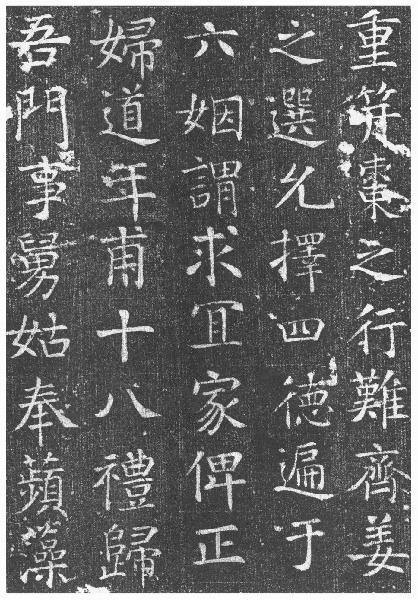 重笄棗之行難齊姜
之選允擇四德遍于
六姻謂求冝家俾正
婦道年甫十八禮歸
吾門事舅姑奉蘋藻